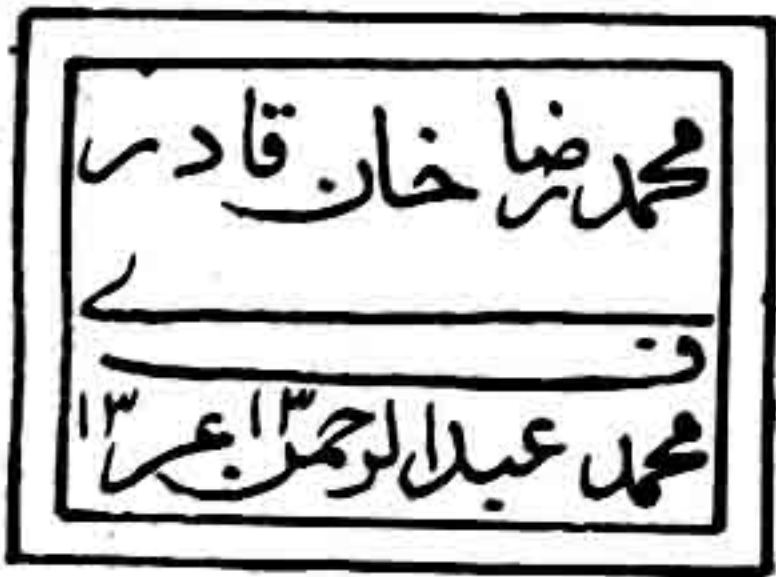 محمد رضا خان قادر
ے
ف
محمد عبدالرحمن ۱۳ عر ۱۳